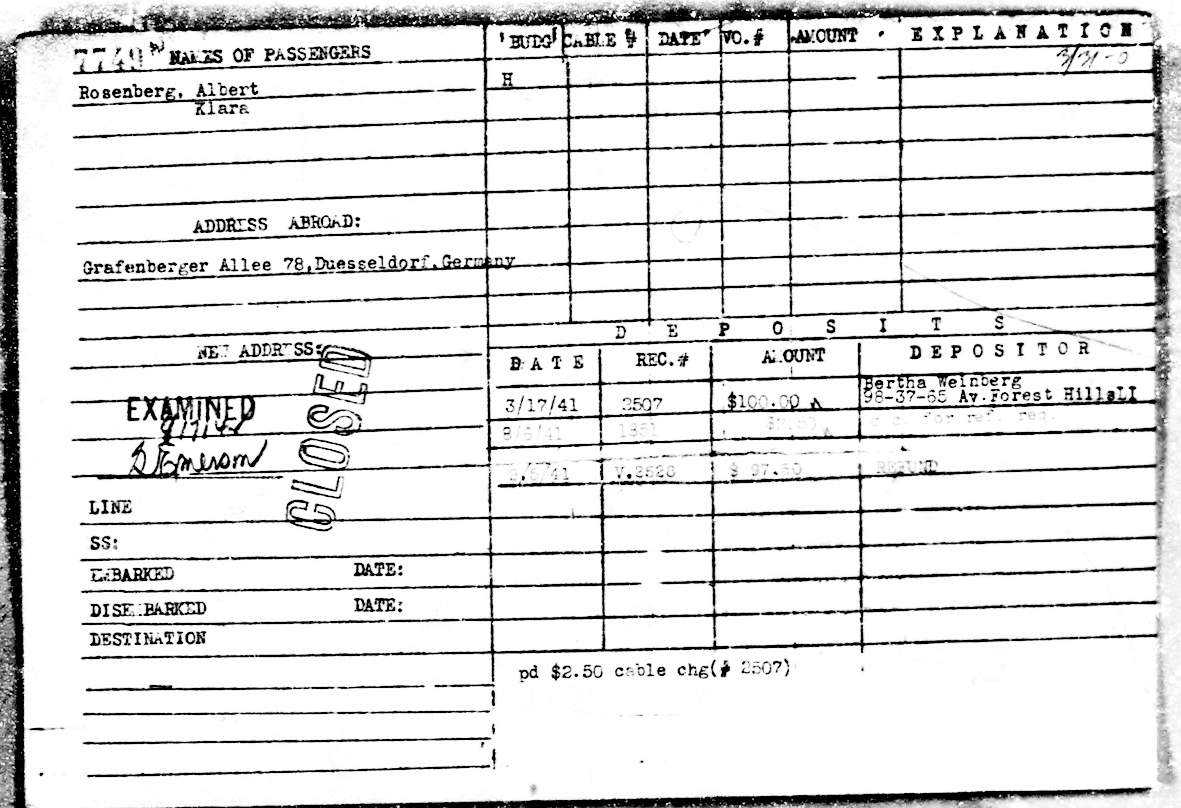 7749 NAMES OF PASSENGERS
BUDG CABLE # DATE VO.# AMOUNT EXPLANATION
3/31-0
Rosenberg, Albert
Klara
H
ADDRESS ABROAD:
Grafenberger Allee 78,Duesseldorf,Germany
DEPOSITS
NEW ADDRESS:
DATE REC.# AMOUNT DEPOSITOR
CLOSED
EXAMINED
S Emerson
3/17/41 2507 $100.00 Bertha Weinberg
98-37-65 Av.Forest HillsLI
8/6/41 1851 $2.50 for ref. req.
9/5/41 V.2528 $ 97.50 REFUND
LINE
SS:
EMBARKED DATE:
DISEMBARKED DATE:
DESTINATION
pd $2.50 cable chg(# 2507)